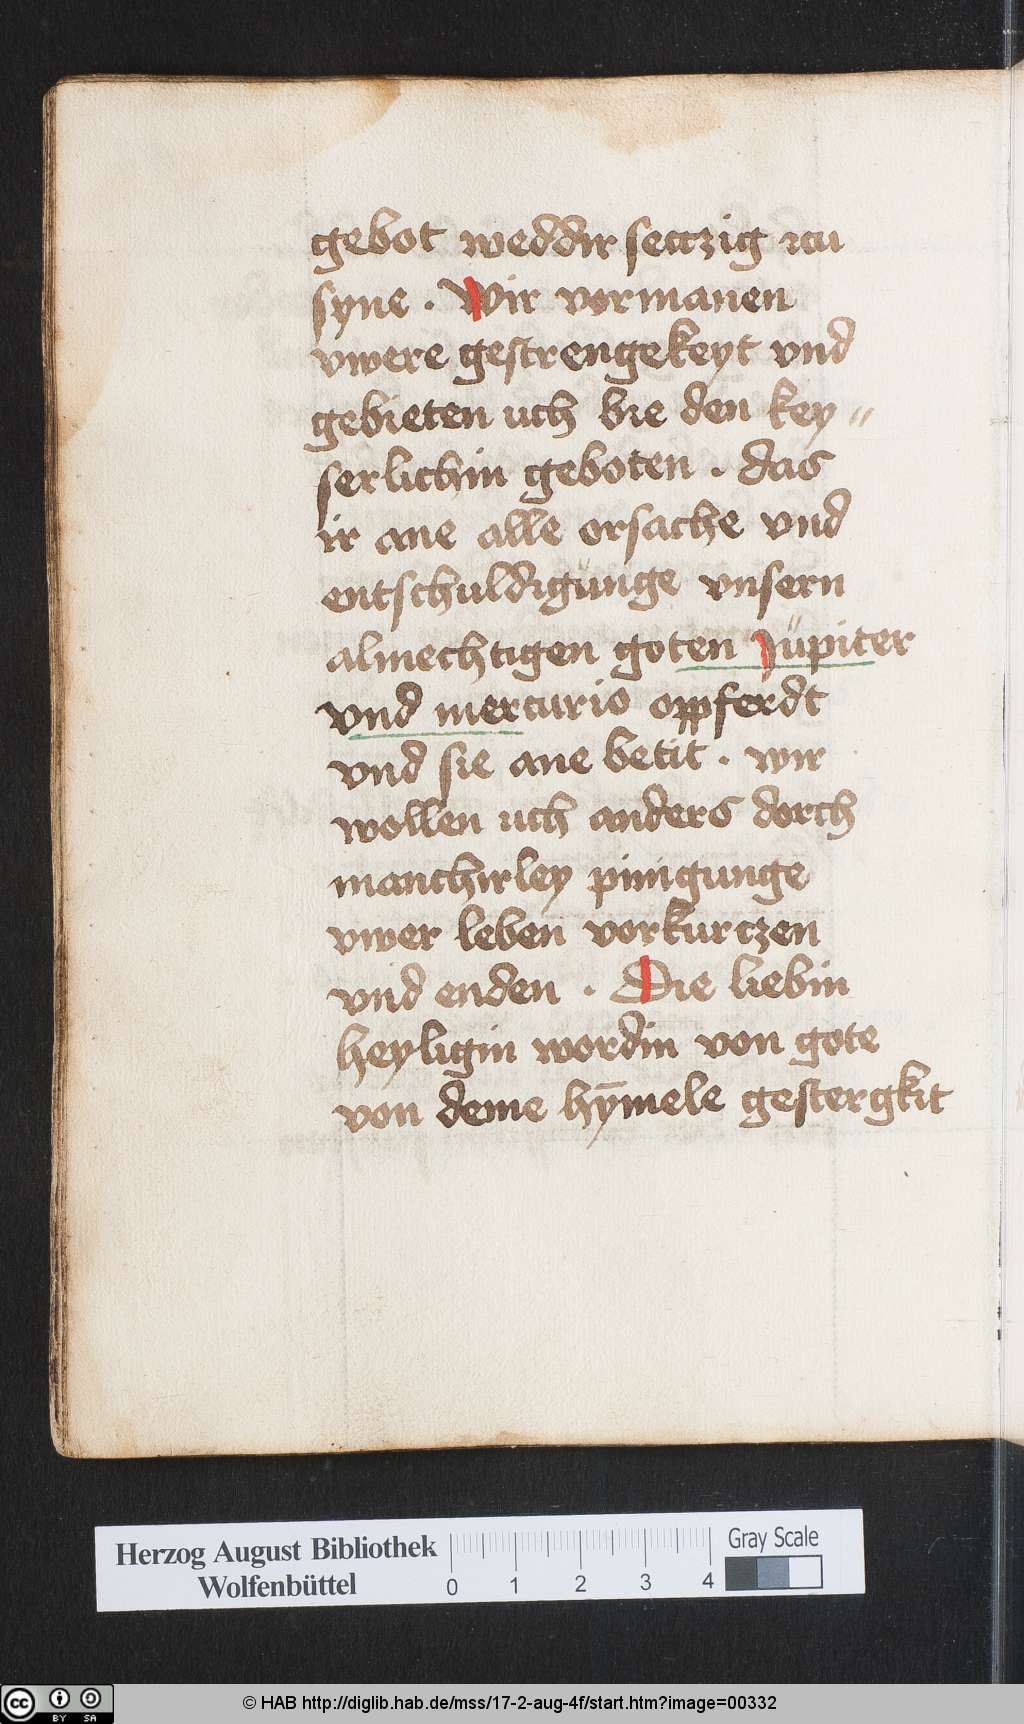 gebot weddir secczig zcu
syne . Wir vormanen
vwere gestrengekeyt vnd
gebieten uch bie den key〃
serlichin geboten . das
ir ane alle orsache vnd
entschuldigunge vnsern
almechtigen goten Jupiter
vnd mercurio oppferdt
vnd sie ane betit . wir
wollen uch anders dorch
manchirley pinigunge
vwer leben vorkurczen
vnd enden . Die liebin
heyligin wordin von gote
von deme hȳmele gestergkit
Herzog August Bibliothek
Wolfenbüttel
0 1 2 3 4
Gray Scale
cc BY SA
© HAB http://diglib.hab.de/mss/17-2-aug-4f/start.htm?image=00332